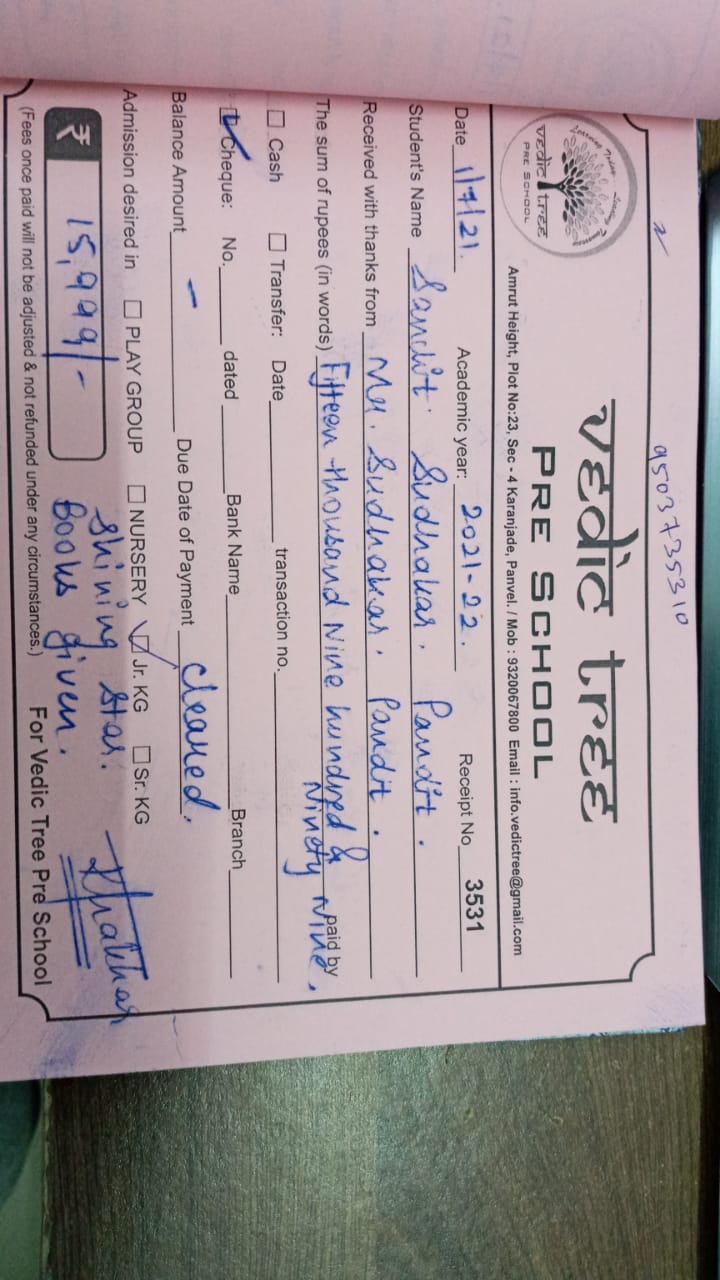 9503735310
vedic tree
PRE SCHOOL
vedic tree
PRE SCHOOL
Amrut Height, Plot No:23, Sec - 4 Karanjade, Panvel. / Mob : 9320067800 Email : info.vedictree@gmail.com
Date 1/7/21. Academic year: 2021-22. Receipt No 3531
Student's Name Sanchit. Sudhakar. Pandit.
Received with thanks from Mr. Sudhakar. Pandit.
The sum of rupees (in words) Fifteen thousand Nine hundred & Ninety Nine. paid by
☐ Cash ☐ Transfer: Date transaction no.
☑ Cheque: No. dated Bank Name Branch
Balance Amount - Due Date of Payment cleared.
Admission desired in ☐ PLAY GROUP ☐ NURSERY ☑ Jr. KG ☐ Sr. KG
₹ 15,999/- Shining Star.
Books given.
For Vedic Tree Pre School
(Fees once paid will not be adjusted & not refunded under any circumstances.)